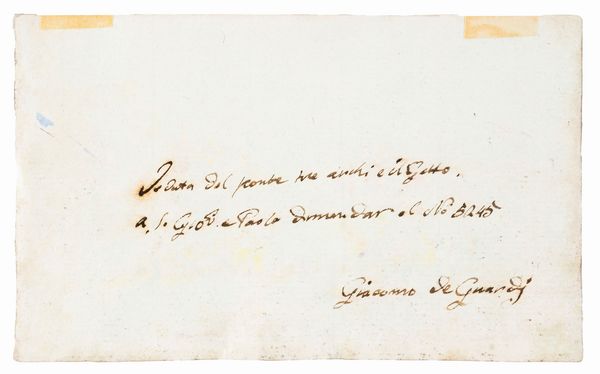 Veduta del ponte tre archi e il Getto.
a, S. Gio:. e Paolo dimandar al No 5245
Giacomo de Guardi